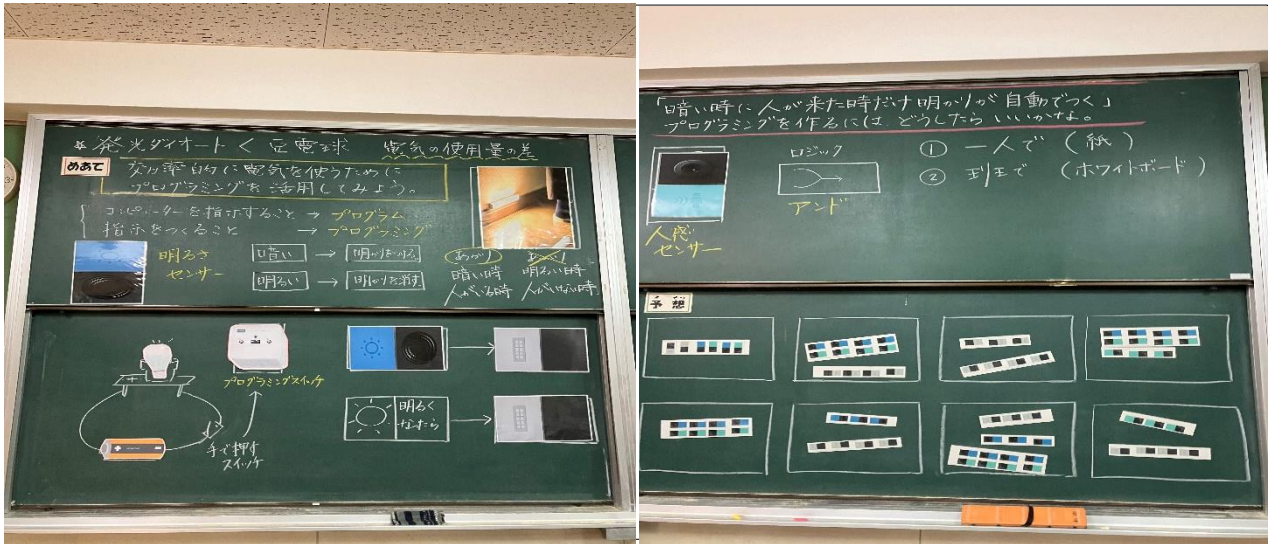 * 発光ダイオード < 豆電球　電気の使用量の差
めあて
効率的に電気を使うために
プログラミングを活用してみよう。
コンピューターを指示すること → プログラム
指示をつくること → プログラミング
明るさ
センサー
暗い → 明かりをつける
明るい → 明かりを消す
あかり
暗い時
人がいる時
あかり
明るい時
人がいない時
プログラミングスイッチ
手で押す
スイッチ
明るく
なったら
「暗い時に人が来た時だけ明かりが自動でつく」
プログラミングを作るには、どうしたらいいかな。
人感
センサー
ロジック
アンド
① 一人で (紙)
② 班で (ホワイトボード)
予想